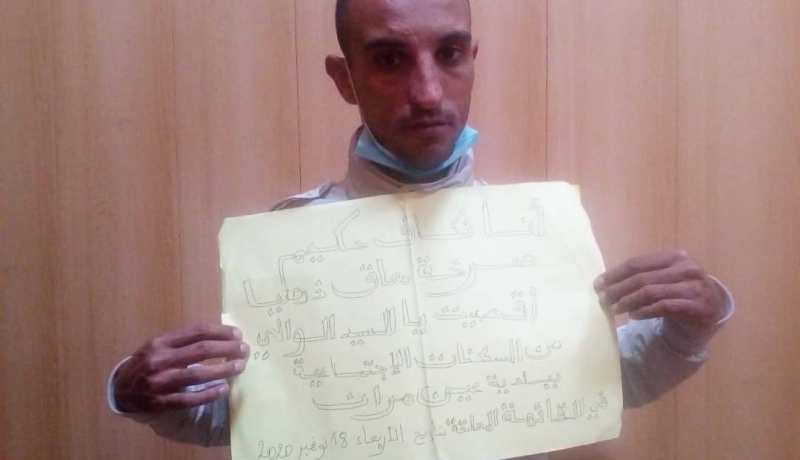 أنا نكاف حكيم
صرخة معاق ذهنيا
أقصيت يا السيد الوالي
من السكنات الإجتماعية
ببلدية عين مران
في القائمة المعلقة بتاريخ الأربعاء 18 نوفمبر 2020